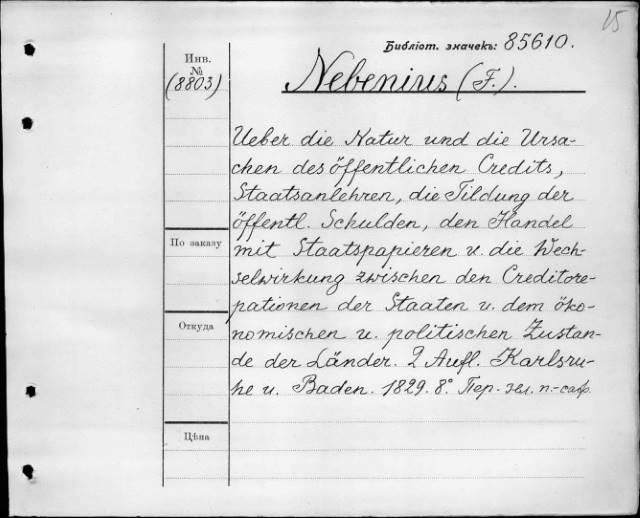 15
Библіот. значекъ: 85610.
Инв.
№
(8803)
Nebenius (F.).
Ueber die Natur und die Ursa-
chen des öffentlichen Credits,
Staatsanlehren, die Tildung der
öffentl. Schulden, den Handel
mit Staatspapieren u. die Wech-
selwirkung zwischen den Creditore-
pationen der Staaten u. dem öko-
nomischen u. politischen Zustan-
de der Länder. 2 Aufl. Karlsru-
he u. Baden. 1829. 8° Пер. зел. п.-сафр.
По заказу
Откуда
Цѣна